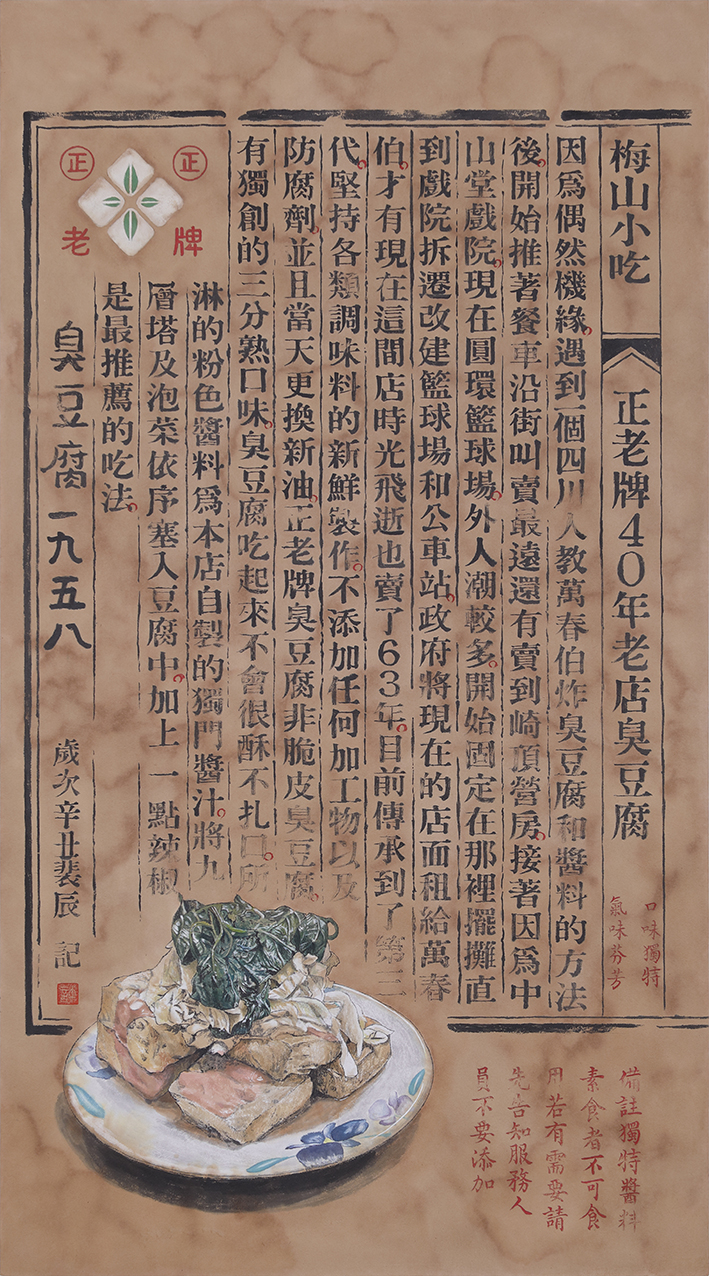 梅山小吃
正老牌40年老店臭豆腐
口味獨特
氣味芬芳
因為偶然機緣。遇到一個四川人教萬春伯炸臭豆腐和醬料的方法
後。開始推著餐車沿街叫賣最遠還有賣到崎頂營房。接著因為中
山堂戲院。現在圓環籃球場。外人潮較多。開始固定在那裡擺攤直
到戲院拆遷改建籃球場和公車站。政府將現在的店面租給萬春
伯。才有現在這間店時光飛逝也賣了63年。目前傳承到了第三
代。堅持各類調味料的新鮮製作。不添加任何加工物以及
防腐劑。並且當天更換新油。正老牌臭豆腐非脆皮臭豆腐。
有獨創的三分熟口味。臭豆腐吃起來不會很酥不扎口。所
淋的粉色醬料為本店自製的獨門醬汁。將九
層塔及泡菜依序塞入豆腐中。加上一點辣椒
是最推薦的吃法。
正 正
老 牌
臭豆腐一九五八
歲次辛丑裴辰 記
備註獨特醬料
素食者不可食
用若有需要請
先告知服務人
員不要添加